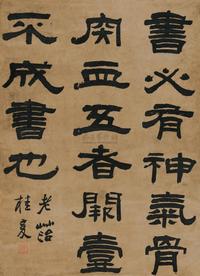 書必有神氣骨
宍血五者闕壹
不成書也
老菭
桂馥